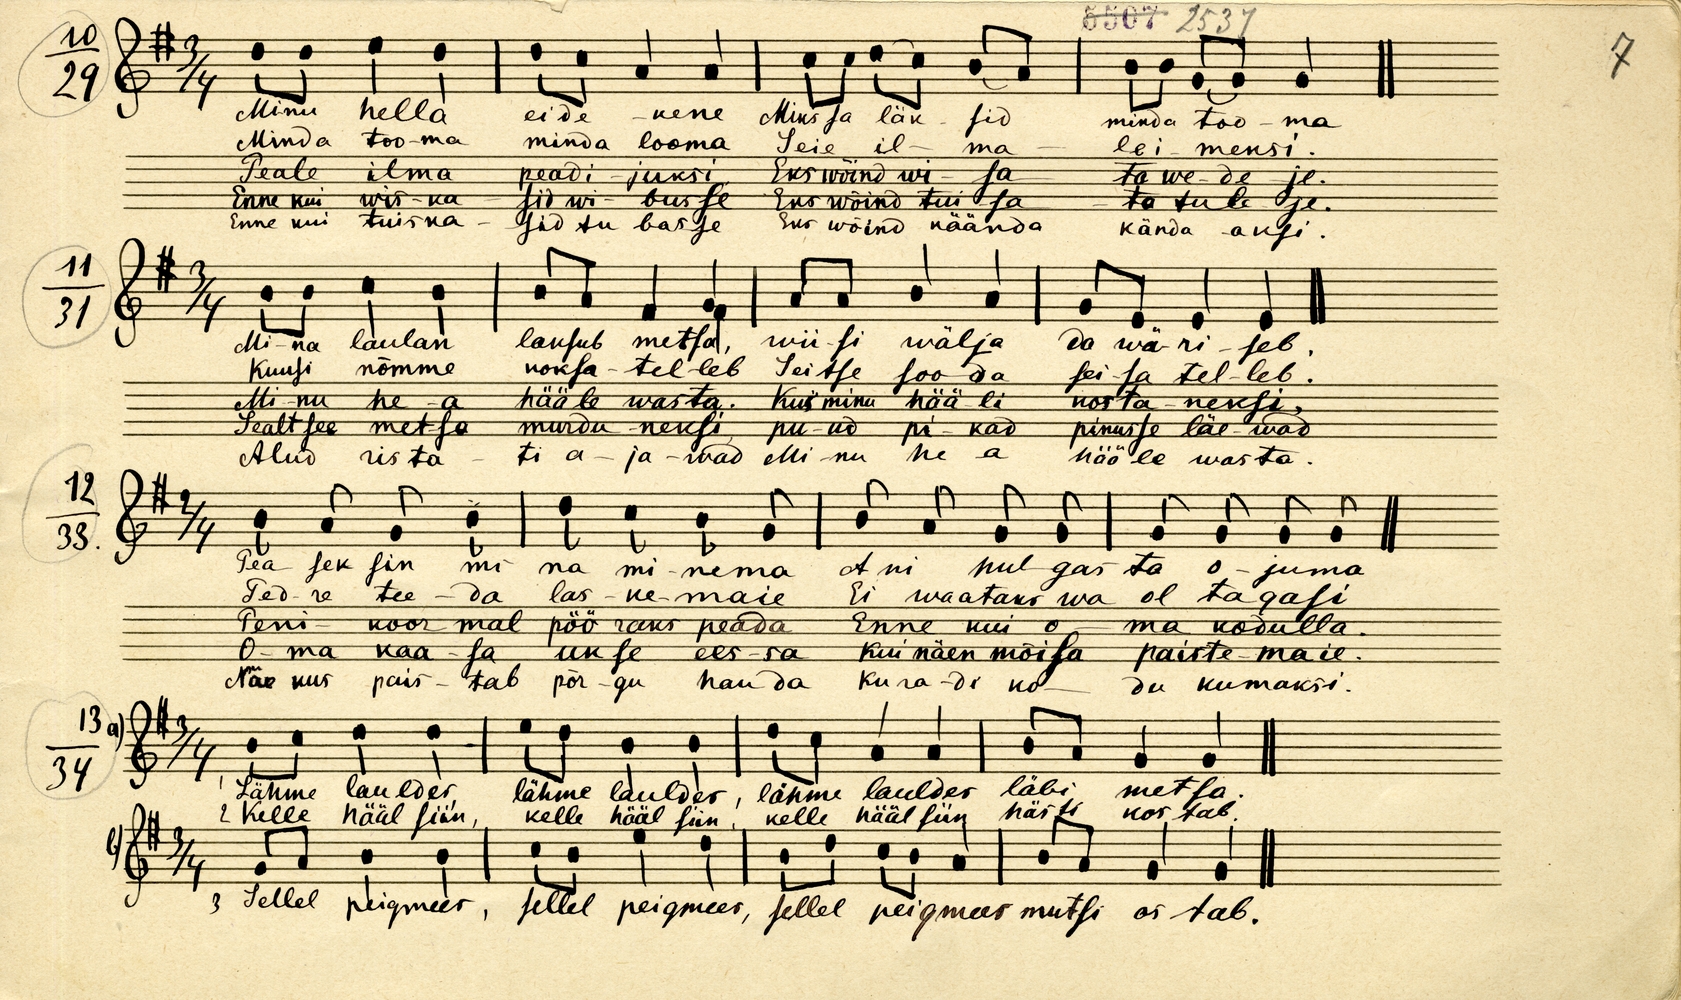 5507 2537
7
10
29
3/4
Minu hella eide - kene Miks sa läk - sid minda too - ma
Minda too-ma minda looma Seie il - ma - lei - meksi.
Peale ilma peadi - juksi Eks wõind wi - sa ta we - de je.
Enne kui wis - ka - sid wi - busse Eks wõind tui sa - ta tule je.
Enne kui tuiska - sid tu basse Eks wõind käända kända aksi.
11
31
3/4
Mi - na laulan laksub metsa, wii - si wälja da wä - ri - seb,
Kuusi nõmme koksa - tel - leb Seitse soo da sei - sa tel - leb.
Mi - nu he - a hääle wasta. Kui minu hää - li kosta - neksi,
Sealt see metsa murdu - neksi pu - ud pi - kad pinusse läe - wad
Alud rista - ti a - ja - wad Mi - nu he a hääle wasta.
12
33.
2/4
Pea sek sin mi na mi - nema A ni hul gas ta o - juma
Ted - re tee - da las - ke - maie Ei waataks wa ol tagasi
Peni - koor mal pöö raks peada Enne kui o - ma kodulla.
O - ma kaa - sa uk se ees - sa Kui näen mõisa paiste - maie.
Näe kus pais - tab põr - gu hau da Ku ra - di ko - du kumaksi.
13 a)
34
3/4
1 Lähme lauldes, lähme lauldes, lähme lauldes läbi metsa.
2 Kelle hääl siin, kelle hääl siin, kelle hääl siin hästi kos tab.
3/4
3 Sellel peigmees, sellel peigmees, sellel peigmees mutsi os tab.